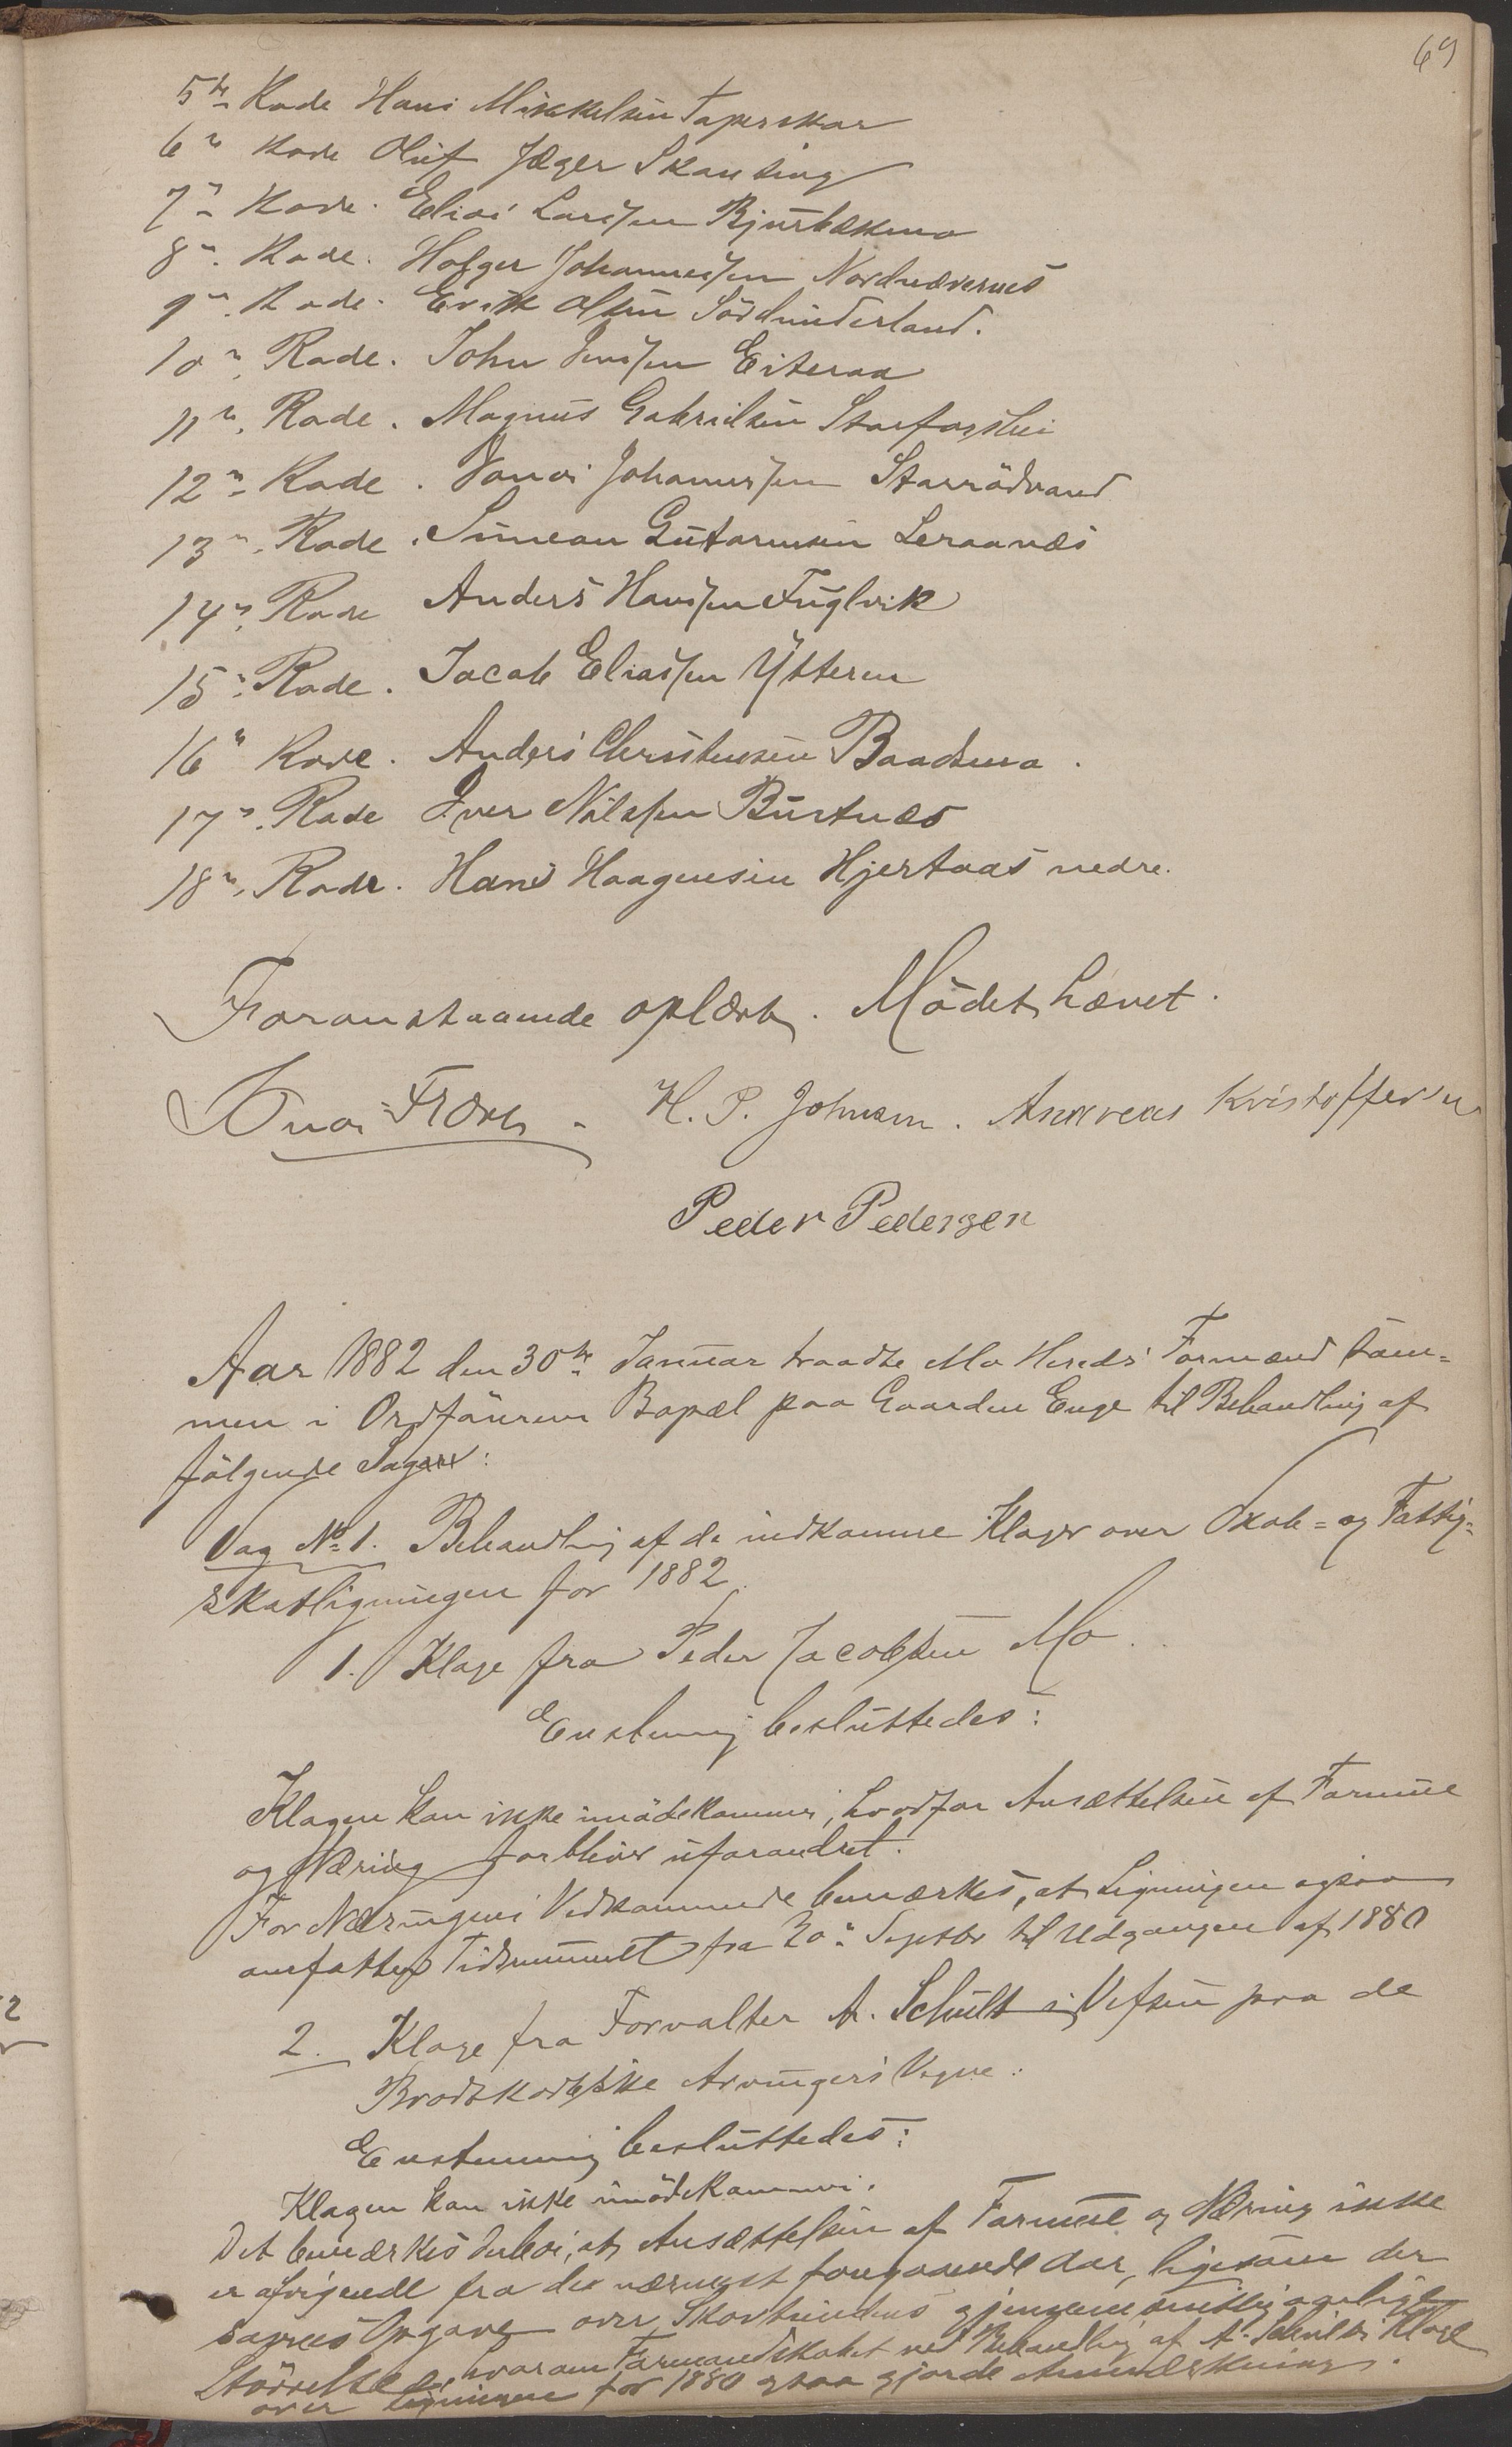 69
5te Rode Hans Mikkelsen Taperskar
6te Rode Oluf Jæger Skansing
7de Rode. Elias Larssen Bjurbækmo
8de Rode. Holger Johannessen Nordnævernes
9de Rode. Erik Olsen Sördunderland.
10de Rode. John Jenssen Eiteraa
11te Rode. Magnus Gabrielsen Storforshei
12te Rode. Jonas Johannessen Storrödvand
13de Rode. Simeon Guttormsen Leraanæs
14de Rode Anders Hanssen Fuglvik
15de Rode. Jacob Eliassen Ytteren
16de Rode. Anders Christensen Baadsmo.
17de Rode Iver Nilssen Bustnæs
18de Rode. Hans Haagensen Hjertaas nedre.
Foranstaaende oplæst. Mödet hævet.
H. P. Johnsen. Andreas Kristoffersen
Peder Pedersen
Aar 1882 den 30te Januar traadte Mo Hereds Formænd sam-
men i Ordförerens Bopæl paa Gaarden Enge til Behandling af
fölgende Sager:
Sag No 1. Behandling af de indkomne Klager over Skole- og Fattig-
skatligningen for 1882.
1. Klage fra Peder Jacobsen Mo.
Enstemmig besluttedes:
Klagen kan ikke imödekommes, hvorfor Ansættelsen af Formue
og Næring forbliver uforandret.
For Næringens Vedkommende bemærkes, at Ligningen ogsaa
omfatter Tidsrummet fra 30te Septbr til Udgangen af 1880
2. Klage fra Forvalter A. Schult i Vefsen paa de
Brodtkorbske Arvingers Vegne:
Enstemmig besluttedes:
Klagen kan ikke imödekommes.
Det bemærkes derhos, at Ansættelsen af Formue og Næring ikke
er afvigende fra det nærmest foregaaende Aar, ligesom der
savnes Opgave over Skovtiendens gjennemsnitlig aarlige
Störrelse, hvorom Formandskabet ved Behandling af A. Schults Klage
over Ligningen for 1880 ogsaa gjorde Anmærkning.